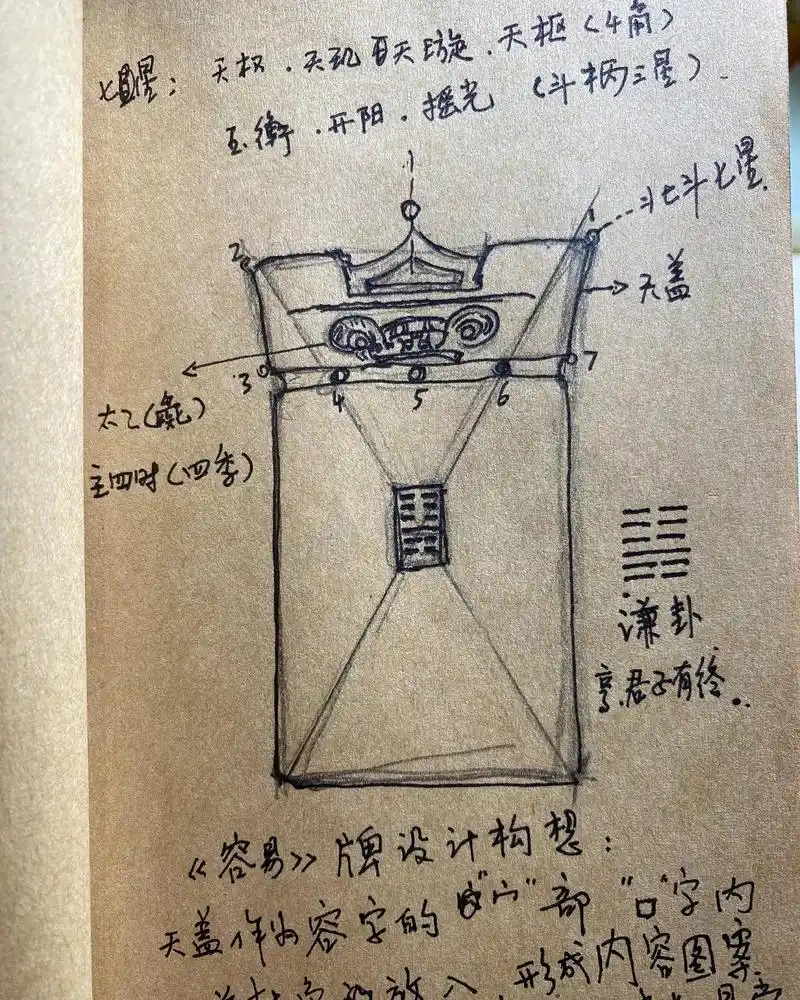 七星：天权．天玑 天璇．天枢（4角）
玉衡．开阳．摇光（斗柄三星）．
1
斗七斗七星．
2
天盖
3
4
5
6
7
太乙（
主四时（四季）
谦卦
亨．君子有终．
《容易》牌设计构想：
天盖作为容字的 "宀"部 "口"字内
放入．形成内容图案